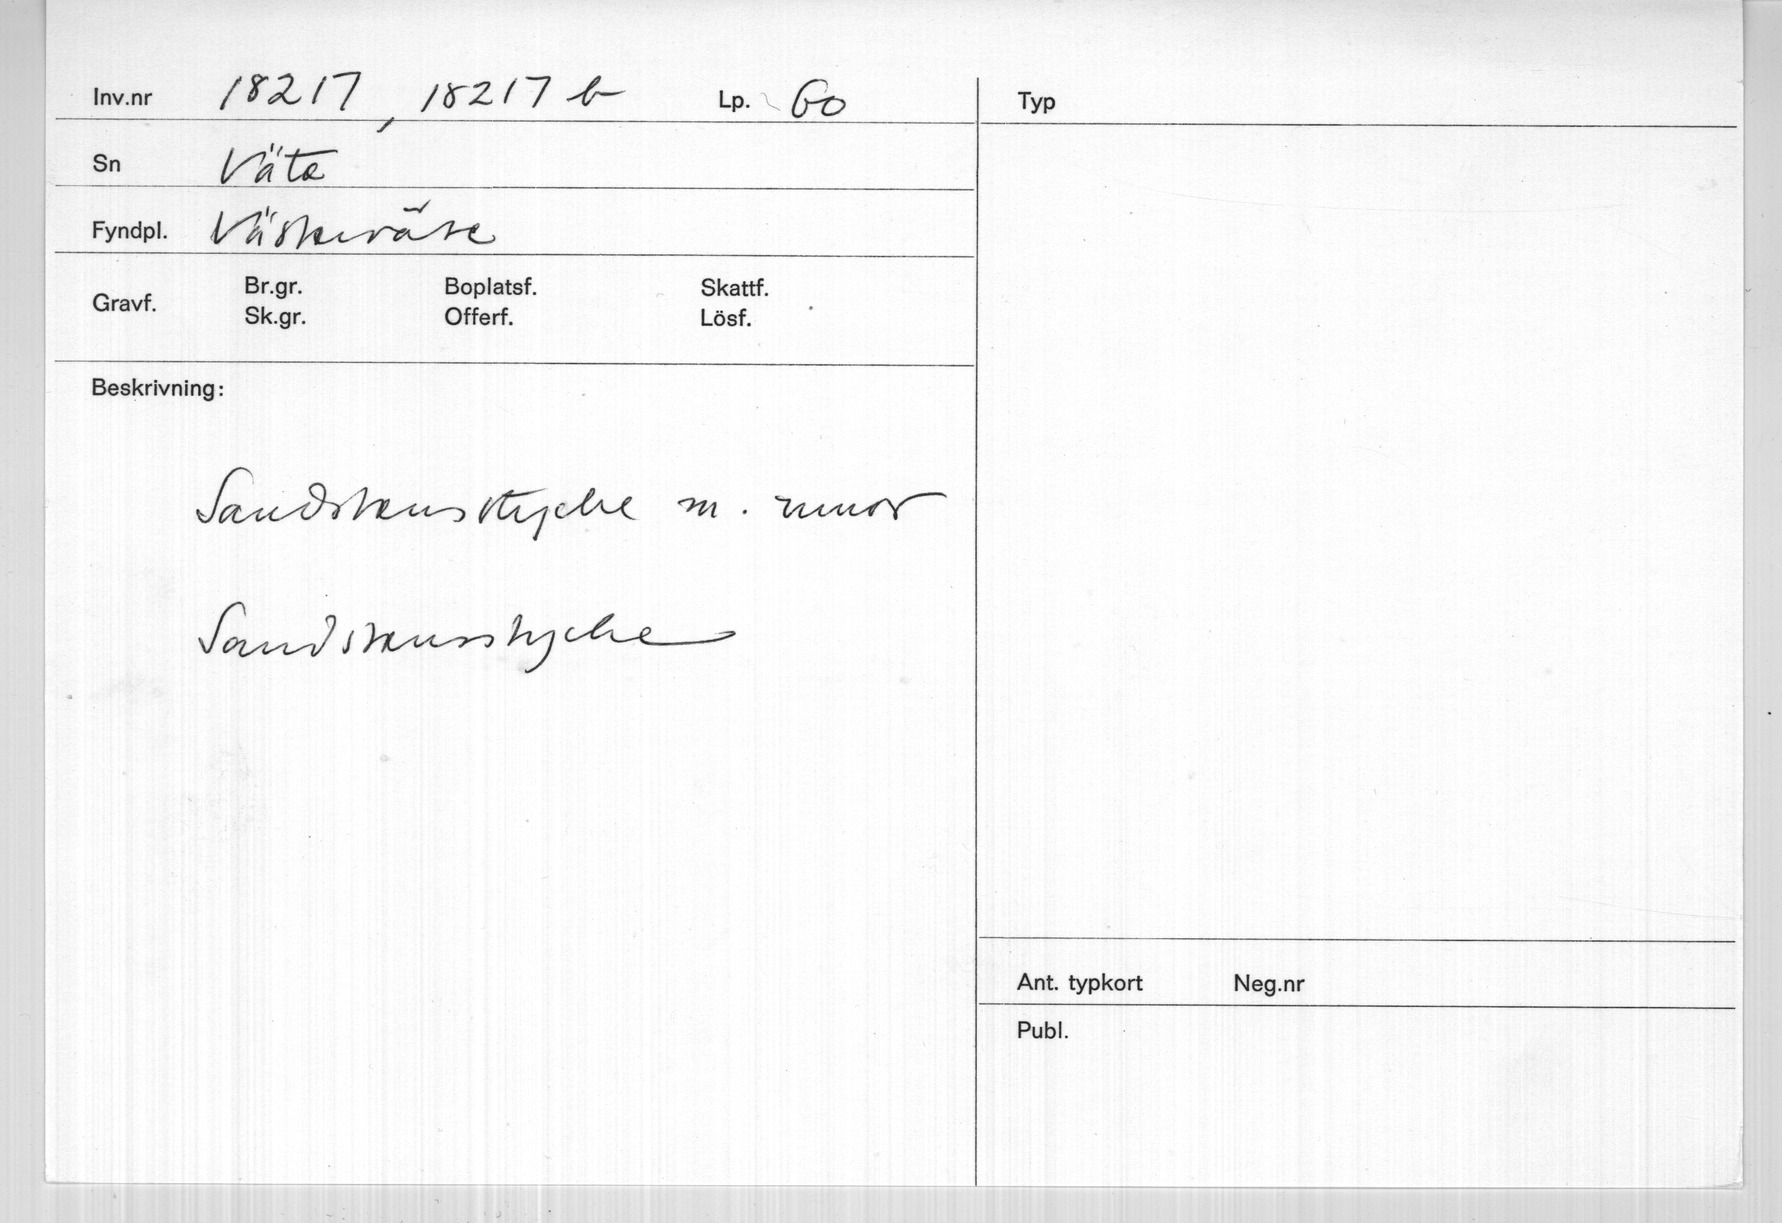 Inv.nr 18217, 18217 b Lp. Go
Sn Väte
Fyndpl. Västerväte
Gravf. Br.gr. Boplatsf. Skattf.
Sk.gr. Offerf. Lösf.
Beskrivning:
Sandstensstycke m. runor
Sandstensstycke
Typ
Ant. typkort Neg.nr
Publ.